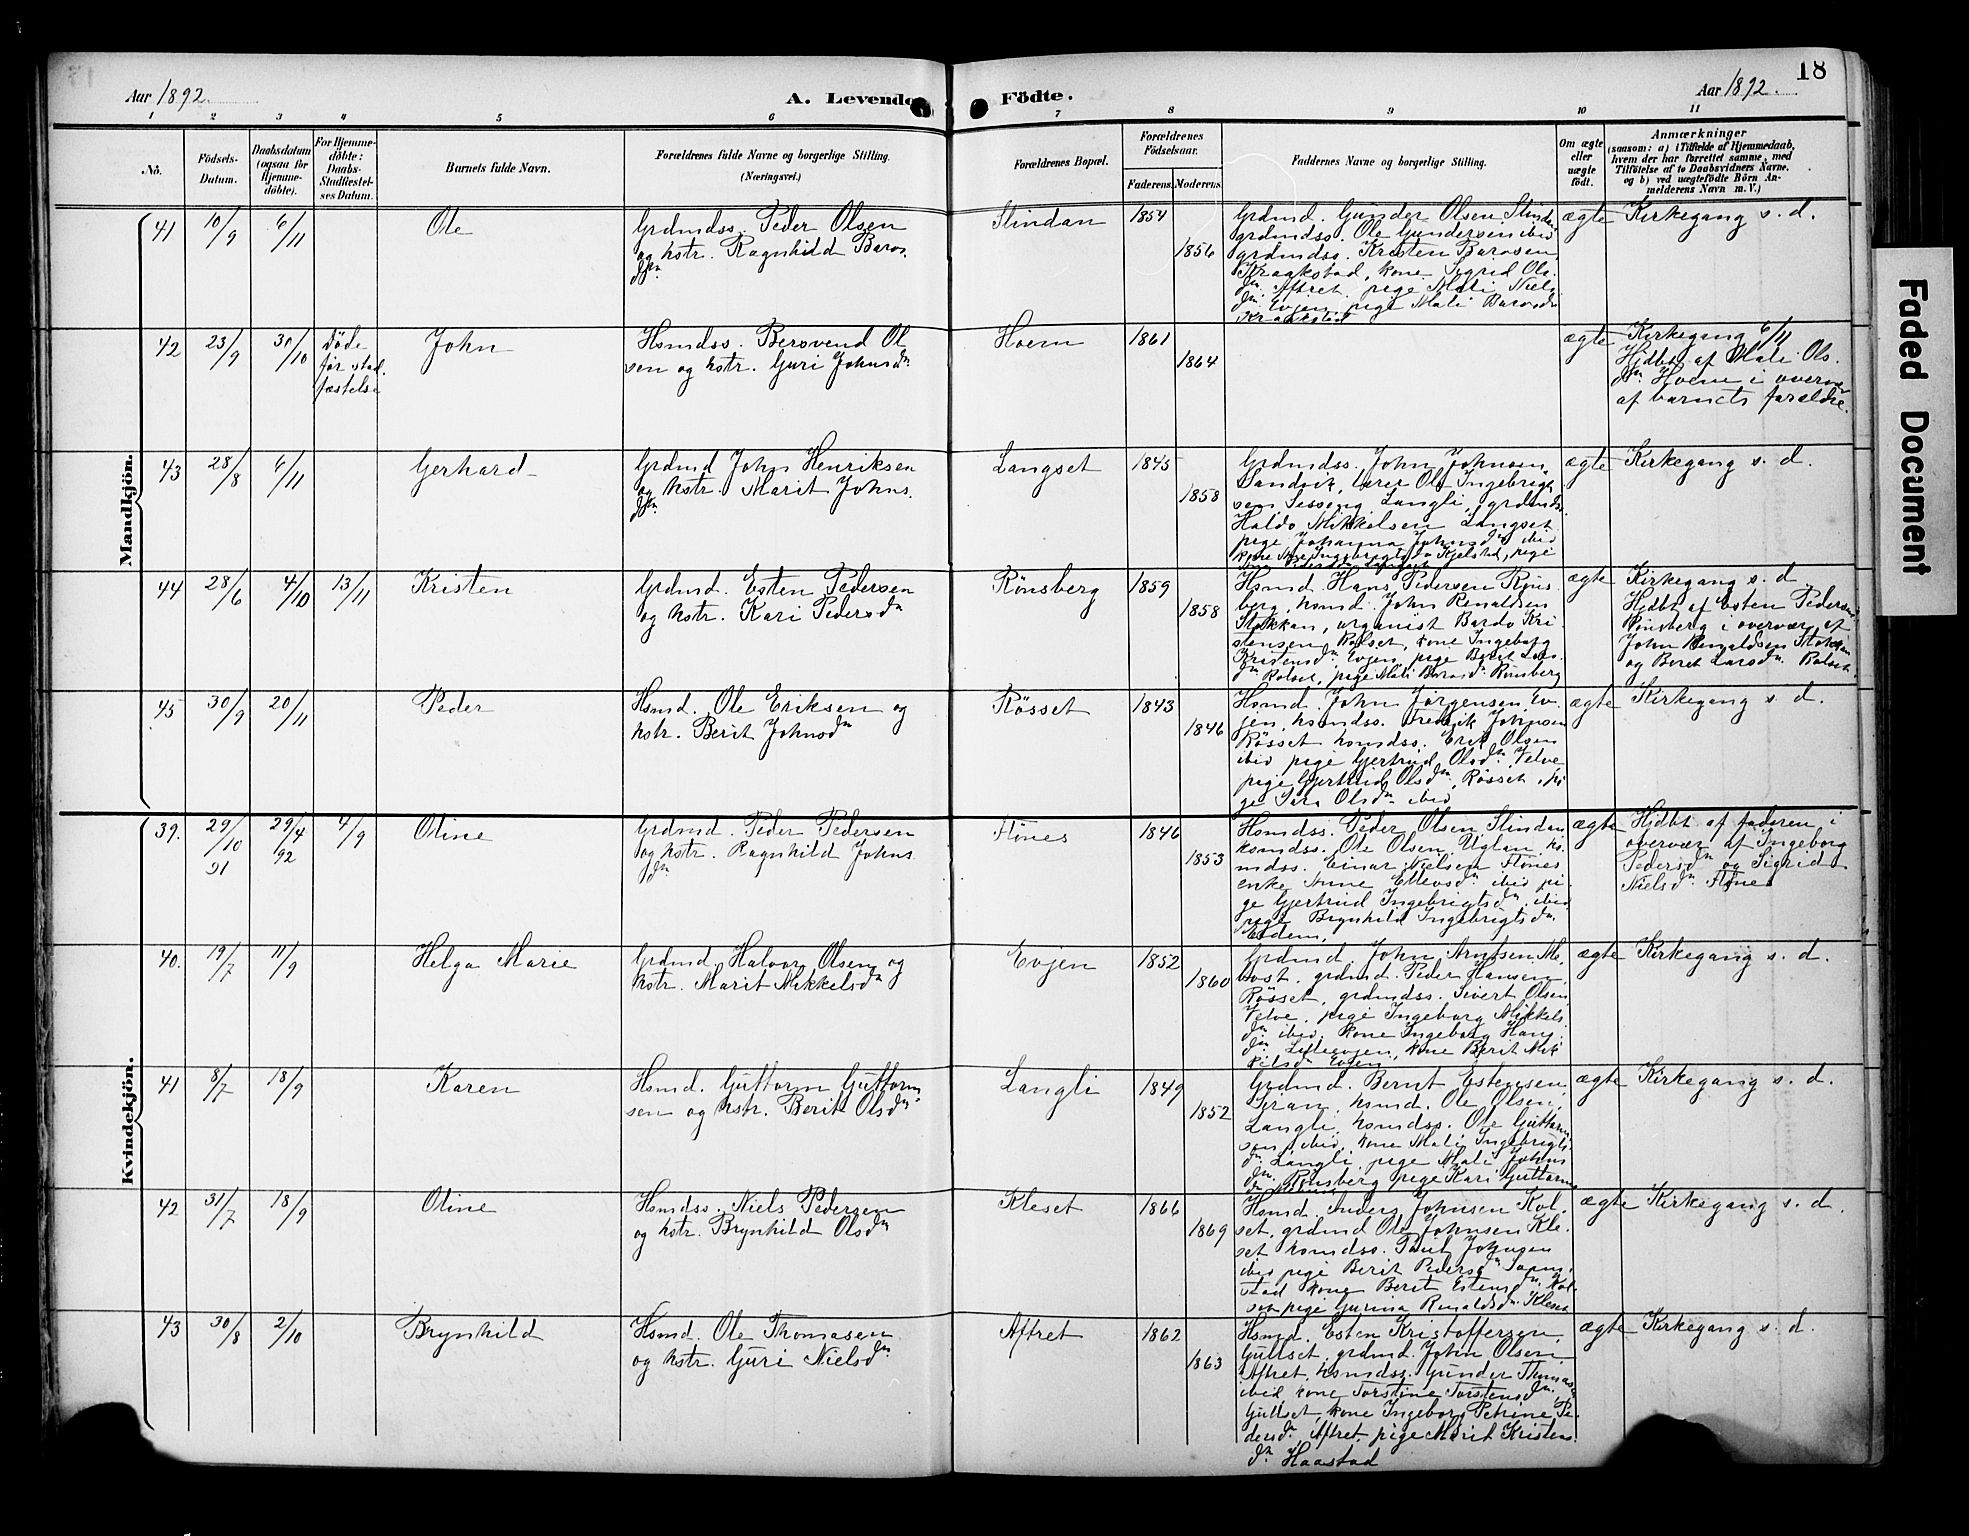 18
Aar 1892
A. Levende
Födte.
Aar 1892
1 2 3 4 5 6 7 8 9 10 11
No.
Födsels-Datum.
Daabsdatum (ogsaa for Hjemme-döbte).
For Hjemme-döbte: Daabs-Stadfæstel-ses Datum.
Barnets fulde Navn.
Forældrenes fulde Navne og borgerlige Stilling. (Næringsvei.)
Forældrenes Bopæl.
Forældrenes Födselsaar.
Faderens. Moderens.
Faddernes Navne og borgerlige Stilling.
Om ægte eller uægte födt.
Anmærkninger
(saasom: a) i Tilfælde af Hjemmedaab, hvem der har forrettet samme, med Tilföielse af to Daabsvidners Navne. og b) ved uægtefödte Börn An-melderens Navn m. V.)
Mandkjön.
41 10/9 6/11 Ole
Grdmdss. Peder Olsen
og kstr. Ragnhild Baros.
dtr.
Slindan 1854 1856
Grdmd. Gunder Olsen Slindan
grdmdss. Ole Gundersen ibid
grdmdss. Kristen Barosen
Kraakstad, kone Sigrid Ols.
dtr. Aftret, pige Mali Niels
dtr. Evjen, pige Mali Barosdtr
Kraakstad
ægte Kirkegang s. d.
42 23/9 30/10 Döde
før stad.
fæstelse
John
Hsmdss. Berovend Ol
sen og kstr. Guri Johnsdtr
Hoem 1861 1864
ægte Kirkegang 6/11
Hjdbt af Mali Ols.
dtr. Hoem i overvær
af barnets forældre.
43 28/8 6/11 Gerhard
Grdmd John Henriksen
og kstr. Marit Johns.
dtr.
Langset 1845 1858
Grdmdss. John Johnsen
Sandvik, lærer Ole Ingebrigt
sen Sesseng Langli, grdmdss.
Haldo Mikkelsen Langset
pige Johanna Johnsdtr ibid
ægte Kirkegang s. d.
44 28/6 4/10 13/11 Kristen
Grdmd. Esten Pedersen
og kstr. Kari Pedersdtr
Rönsberg 1859 1858
Hsmd. Hans Pedersen Röns
berg, hsmd. John Renaldsen
Stokkan, organist Bardo Kri
stensen Rolset, kone Ingeborg
Kristensdtr Evjen, pige Beret Lars
dtr Rolset, pige Mali Barosdtr Rönsberg
ægte Kirkegang s. d.
Hjdbt af Esten Pedersen
Rönsberg i overvær af
John Renaldsen Stokkan
og Beret Larsdtr Rolset.
45 30/9 20/11 Peder
Hsmd. Ole Eriksen og
kstr. Berit Johnsdtr
Rösset 1843 1846
Hsmd. John Jörgensen Ev
jen, hsmdss. Fredrik Johnsen
Rösset hsmdss. Erik Olsen
ibid pige Gjertrud Olsdtr Velve
pige Gjertrud Olsdtr Rösset, pi
ge Sara Olsdtr ibid
ægte Kirkegang s. d.
Kvindekjön.
39. 29/10 91 29/4 92 4/9 Oline
Grdmd. Peder Pedersen
og kstr. Ragnhild Johns
dtr
Flönes 1846 1853
Hsmdss. Peder Olsen Slindan
hsmdss. Ole Olsen Uglan hs
mdss. Einar Nielsen Flönes
enke Anne Ellevsdtr ibid pi
ge Gjertrud Ingebrigtsdtr ibid
pige Brynhild Ingebrigtsdtr
ægte Hjdbt af faderen i
overvær af Ingeborg
Pedersdtr og Sigrid
Nielsdtr Flönes
40. 19/7 11/9 Helga Marie
Grdmd. Halvor Olsen og
kstr. Marit Mikkelsdtr
Evjen 1852 1860
Grdmd. John Arntsen Me
bost, grdmd. Peder Hansen
Rösset, grdmdss. Sivert Olsen
Velve, pige Ingeborg Mikkels
dtr ibid, kone Ingeborg Hans
dtr Lilleevjen, kone Berit Mik
kelsdtr Evjen
ægte Kirkegang s. d.
41 8/7 18/9 Karen
Hsmd. Guttorm Guttorm
sen og kstr. Berit Olsdtr
Langli 1849 1852
Grdmd. Bernt Estensen
Gran, hsmd. Ole Olsen
Langli, hsmdss. Ole Guttorm
sen ibid, kone Mali Ingebrigts
dtr Langli, pige Mali Johns
dtr Rönsberg pige Kari Guttorms
ægte Kirkegang s. d.
42 31/7 18/9 Oline
Hsmdss. Niels Pedersen
og kstr. Brynhild Olsdtr
Kleset 1866 1869
Hsmd. Anders Johnsen Rol
set, grdmd Ole Johnsen Kle
set hsmdss. Paul Johnsen
ibid pige Berit Pedersdtr
stad kone Berit Estensdtr Rol
set pige Gurina Renaldsdtr Kleset
ægte Kirkegang s. d.
43 30/8 2/10 Brynhild
Hsmd. Ole Thomasen
og kstr. Guri Nielsdtr
Aftret 1862 1863
Hsmd. Esten Kristoffersen
Gullset, grdmd. John Olsen
Aftret, hsmdss. Gunder Thomasen
ibid kone Torstine Torstensdtr
Gullset, kone Ingeborg Petrine Pe
dersdtr Aftret, pige Marit Kristens
dtr Haastad
ægte Kirkegang s. d.
Faded Document